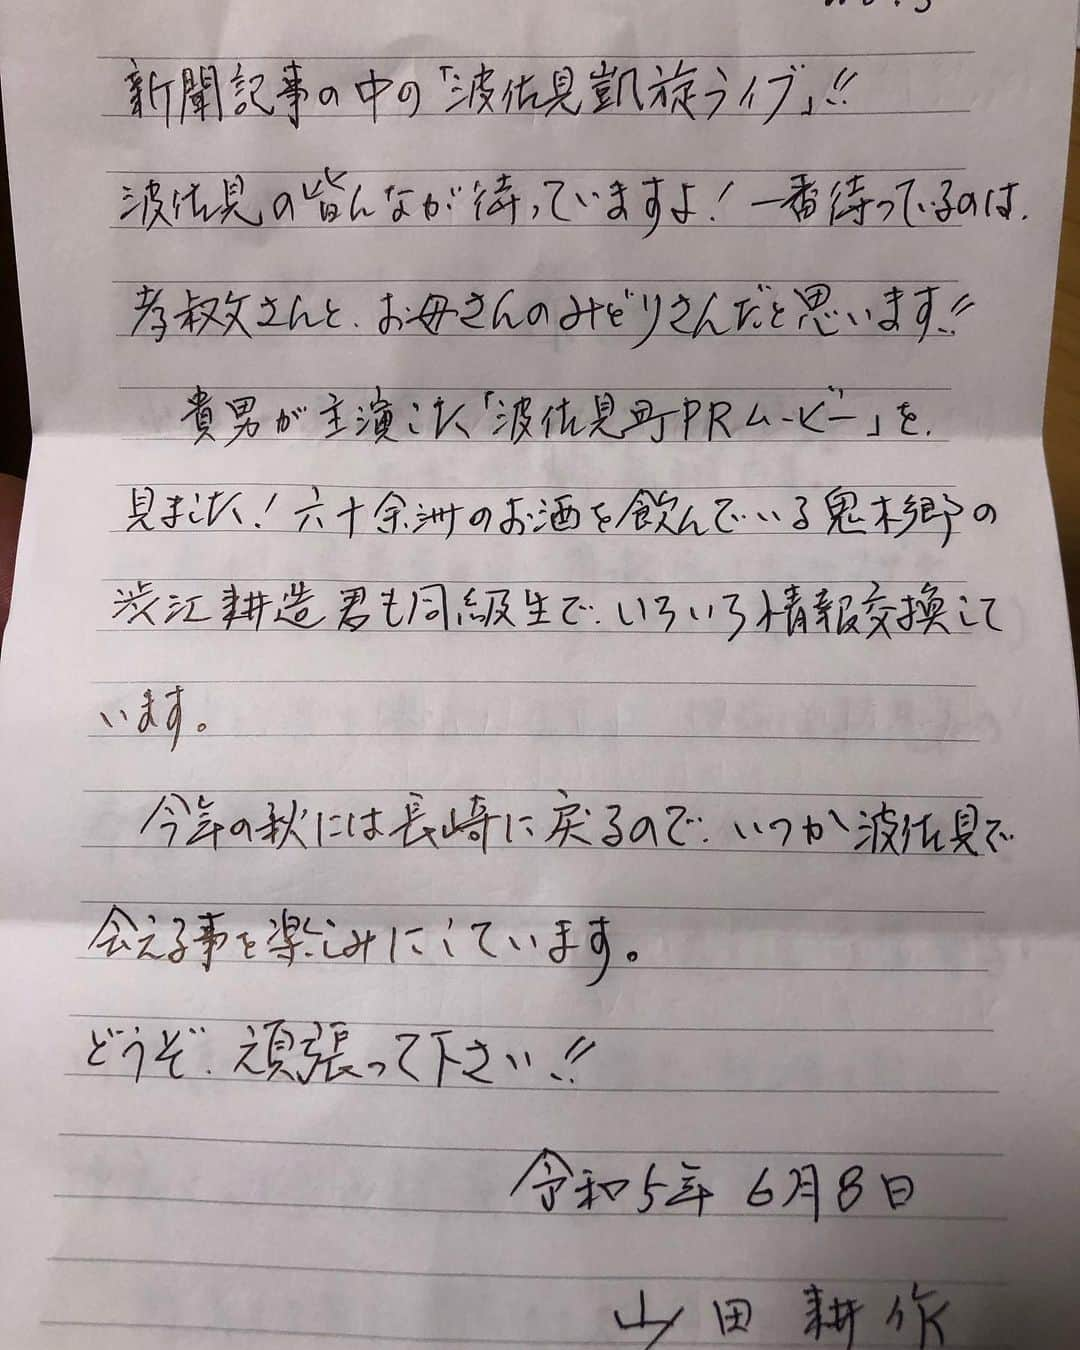 新聞記事の中の「波佐見凱旋ライブ」!!
波佐見の皆んなが待っていますよ！一番待っているのは、
孝叔父さんと、お母さんのみどりさんだと思います!!
貴男が主演した「波佐見町PRムービー」を、
見ました！六十余洲のお酒を飲んでいる鬼木郷の
渋江耕造君も同級生で、いろいろ情報交換して
います。
今年の秋には長崎に戻るので、いつか波佐見で
会える事を楽しみにしています。
どうぞ、頑張って下さい!!
令和5年 6月8日
山田耕作